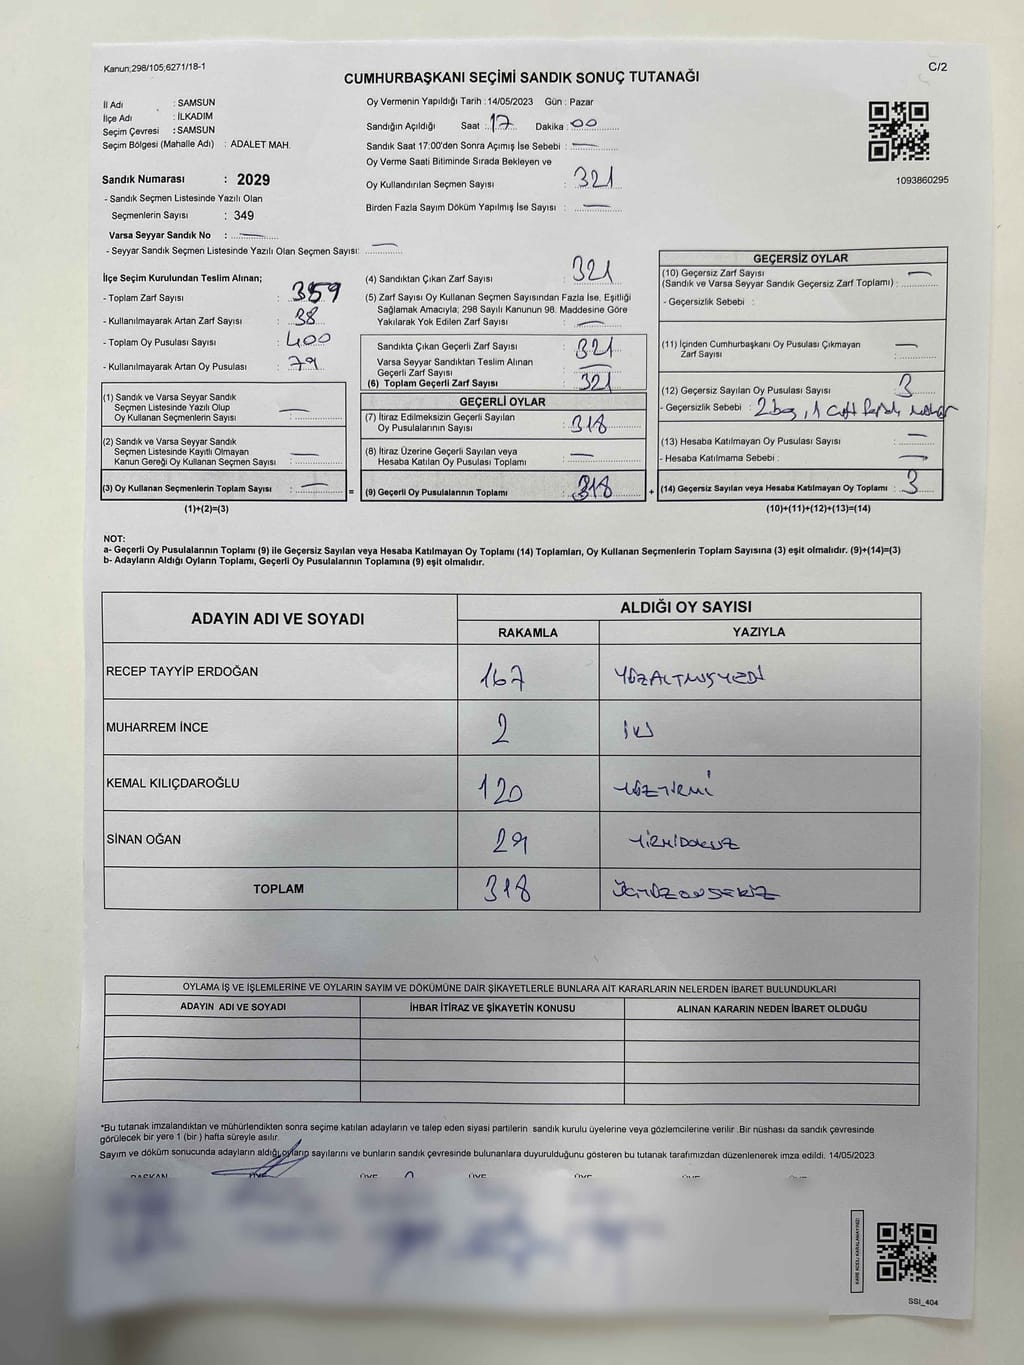 Kanun;298/105;6271/18-1
C/2
CUMHURBAŞKANI SEÇİMİ SANDIK SONUÇ TUTANAĞI
İl Adı : SAMSUN
İlçe Adı : İLKADIM
Seçim Çevresi : SAMSUN
Seçim Bölgesi (Mahalle Adı) : ADALET MAH.
Sandık Numarası : 2029
- Sandık Seçmen Listesinde Yazılı Olan
Seçmenlerin Sayısı : 349
Varsa Seyyar Sandık No : —
- Seyyar Sandık Seçmen Listesinde Yazılı Olan Seçmen Sayısı: —
Oy Vermenin Yapıldığı Tarih : 14/05/2023 Gün : Pazar
Sandığın Açıldığı Saat : 17 Dakika : 00
Sandık Saat 17:00'den Sonra Açımış İse Sebebi : —
Oy Verme Saati Bitiminde Sırada Bekleyen ve
Oy Kullandırılan Seçmen Sayısı : 321
Birden Fazla Sayım Döküm Yapılmış İse Sayısı : —
1093860295
İlçe Seçim Kurulundan Teslim Alınan;
- Toplam Zarf Sayısı : 359
- Kullanılmayarak Artan Zarf Sayısı : 38
- Toplam Oy Pusulası Sayısı : 400
- Kullanılmayarak Artan Oy Pusulası : 79
(1) Sandık ve Varsa Seyyar Sandık
Seçmen Listesinde Yazılı Olup
Oy Kullanan Seçmenlerin Sayısı : —
(2) Sandık ve Varsa Seyyar Sandık
Seçmen Listesinde Kayıtlı Olmayan
Kanun Gereği Oy Kullanan Seçmen Sayısı : —
(3) Oy Kullanan Seçmenlerin Toplam Sayısı : — =
(1)+(2)=(3)
(4) Sandıktan Çıkan Zarf Sayısı : 321
(5) Zarf Sayısı Oy Kullanan Seçmen Sayısından Fazla İse, Eşitliği
Sağlamak Amacıyla; 298 Sayılı Kanunun 98. Maddesine Göre
Yakılarak Yok Edilen Zarf Sayısı : —
Sandıkta Çıkan Geçerli Zarf Sayısı : 321
Varsa Seyyar Sandıktan Teslim Alınan
Geçerli Zarf Sayısı : —
(6) Toplam Geçerli Zarf Sayısı : 321
GEÇERLİ OYLAR
(7) İtiraz Edilmeksizin Geçerli Sayılan
Oy Pusulalarının Sayısı : 318
(8) İtiraz Üzerine Geçerli Sayılan veya
Hesaba Katılan Oy Pusulası Toplamı : —
(9) Geçerli Oy Pusulalarının Toplamı : 318 +
GEÇERSİZ OYLAR
(10) Geçersiz Zarf Sayısı —
(Sandık ve Varsa Seyyar Sandık Geçersiz Zarf Toplamı) :
- Geçersizlik Sebebi :
(11) İçinden Cumhurbaşkanı Oy Pusulası Çıkmayan
Zarf Sayısı : —
(12) Geçersiz Sayılan Oy Pusulası Sayısı : 3
- Geçersizlik Sebebi : 2 boş, 1 çift
(13) Hesaba Katılmayan Oy Pusulası Sayısı : —
- Hesaba Katılmama Sebebi : —
(14) Geçersiz Sayılan veya Hesaba Katılmayan Oy Toplamı : 3
(10)+(11)+(12)+(13)=(14)
NOT:
a- Geçerli Oy Pusulalarının Toplamı (9) ile Geçersiz Sayılan veya Hesaba Katılmayan Oy Toplamı (14) Toplamları, Oy Kullanan Seçmenlerin Toplam Sayısına (3) eşit olmalıdır. (9)+(14)=(3)
b- Adayların Aldığı Oyların Toplamı, Geçerli Oy Pusulalarının Toplamına (9) eşit olmalıdır.
ADAYIN ADI VE SOYADI
ALDIĞI OY SAYISI
RAKAMLA YAZIYLA
RECEP TAYYİP ERDOĞAN 167 YÜZALTMIŞYEDİ
MUHARREM İNCE 2 İKİ
KEMAL KILIÇDAROĞLU 120 YÜZYİRMİ
SİNAN OĞAN 29 YİRMİDOKUZ
TOPLAM 318 ÜÇYÜZONSEKİZ
OYLAMA İŞ VE İŞLEMLERİNE VE OYLARIN SAYIM VE DÖKÜMÜNE DAİR ŞİKAYETLERLE BUNLARA AİT KARARLARIN NELERDEN İBARET BULUNDUKLARI
ADAYIN ADI VE SOYADI İHBAR İTİRAZ VE ŞİKAYETİN KONUSU ALINAN KARARIN NEDEN İBARET OLDUĞU
*Bu tutanak imzalandıktan ve mühürlendikten sonra seçime katılan adayların ve talep eden siyasi partilerin sandık kurulu üyelerine veya gözlemcilerine verilir .Bir nüshası da sandık çevresinde
görülecek bir yere 1 (bir ) hafta süreyle asılır.
Sayım ve döküm sonucunda adayların aldığı oyların sayılarını ve bunların sandık çevresinde bulunanlara duyurulduğunu gösteren bu tutanak tarafımızdan düzenlenerek imza edildi. 14/05/2023
BAŞKAN ÜYE ÜYE ÜYE ÜYE ÜYE ÜYE
KARE KODU KARALAMAYINIZ!
SSI_404